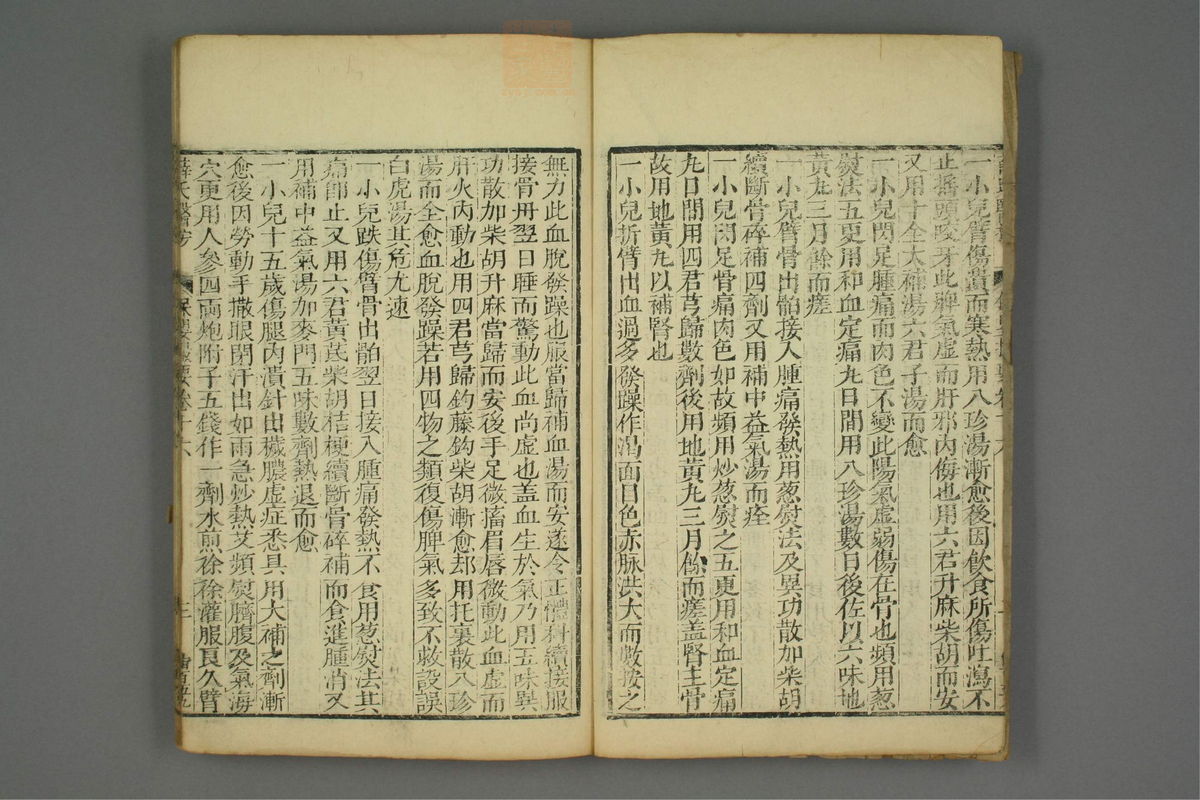 一小兒臂傷潰而寒熱用八珍湯漸愈後因飲食所傷吐瀉不
止搖頭咬牙此脾氣虛而肝邪內侮也用六君升麻柴胡而安
又用十全大補湯六君子湯而愈
一小兒閃足腫痛而肉色不變此陽氣虛弱傷在骨也頻用葱
熨法五更用和血定痛丸日間用八珍湯數日後佐以六味地
黃丸三月餘而瘥
一小兒臂骨出䯊接入腫痛發熱用葱熨法及異功散加柴胡
續斷骨碎補四劑又用補中益氣湯而痊
一小兒閃足骨痛肉色如故頻用炒葱熨之五更用和血定痛
丸日間用四君芎歸數劑後用地黃丸三月餘而瘥盖腎主骨
故用地黃丸以補腎也
一小兒折臂出血過多發躁作渴面目色赤脉洪大而數按之
無力此血脫發躁也服當歸補血湯而安遂令正體科續接服
接骨丹翌日睡而驚動此血尚虛也盖血生於氣乃用五味異
功散加柴胡升麻當歸而安後手足微搐眉唇微動此血虛而
肝火內動也用四君芎歸鈎藤鈎柴胡漸愈却用托裏散八珍
湯而全愈血脫發躁若用四物之類復傷脾氣多致不救設誤
白虎湯其危尤速
一小兒跌傷臂骨出䯊翌日接入腫痛發熱不食用葱熨法其
痛卽止又用六君黃芪柴胡桔梗續斷骨碎補而食進腫消又
用補中益氣湯加麥門五味數劑熱退而愈
一小兒十五歲傷腿內潰針出穢膿虛症悉具用大補之劑漸
愈後因勞動手撒眼閉汗出如雨急炒熱艾頻熨臍腹及氣海
穴更用人參四兩炮附子五錢作一劑水煎徐徐灌服良久臂
保嬰撮要卷十六